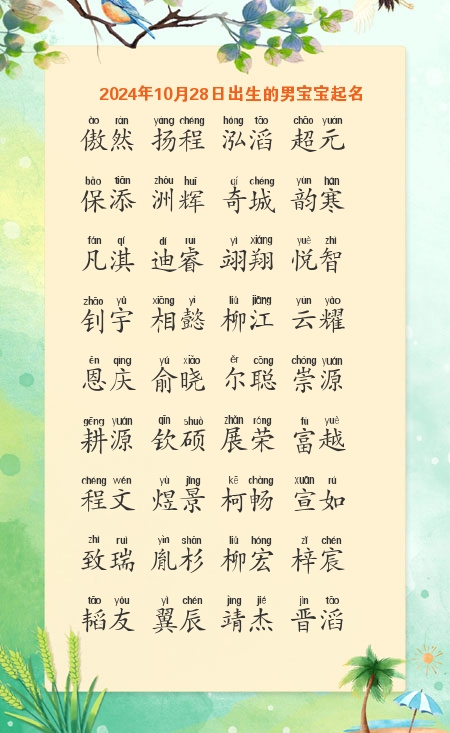 2024年10月28日出生的男宝宝起名
ào rán yáng chéng hóng tāo chāo yuán
傲然 扬程 泓滔 超元
bǎo tiān zhōu huī qí chéng yùn hán
保添 洲辉 奇城 韵寒
fán qí dí ruì yì xiáng yuè zhì
凡淇 迪睿 翊翔 悦智
zhāo yǔ xiāng yì liǔ jiāng yún yào
钊宇 相懿 柳江 云耀
ēn qìng yú xiǎo ěr cōng chóng yuán
恩庆 俞晓 尔聪 崇源
gēng yuán qīn shuò zhǎn róng fù yuè
耕源 钦硕 展荣 富越
chéng wén yù jǐng kē chàng xuān rú
程文 煜景 柯畅 宣如
zhì ruì yìn shān liǔ hóng zǐ chén
致瑞 胤杉 柳宏 梓宸
tāo yǒu yì chén jìng jié jìn tāo
韬友 翼辰 靖杰 晋滔